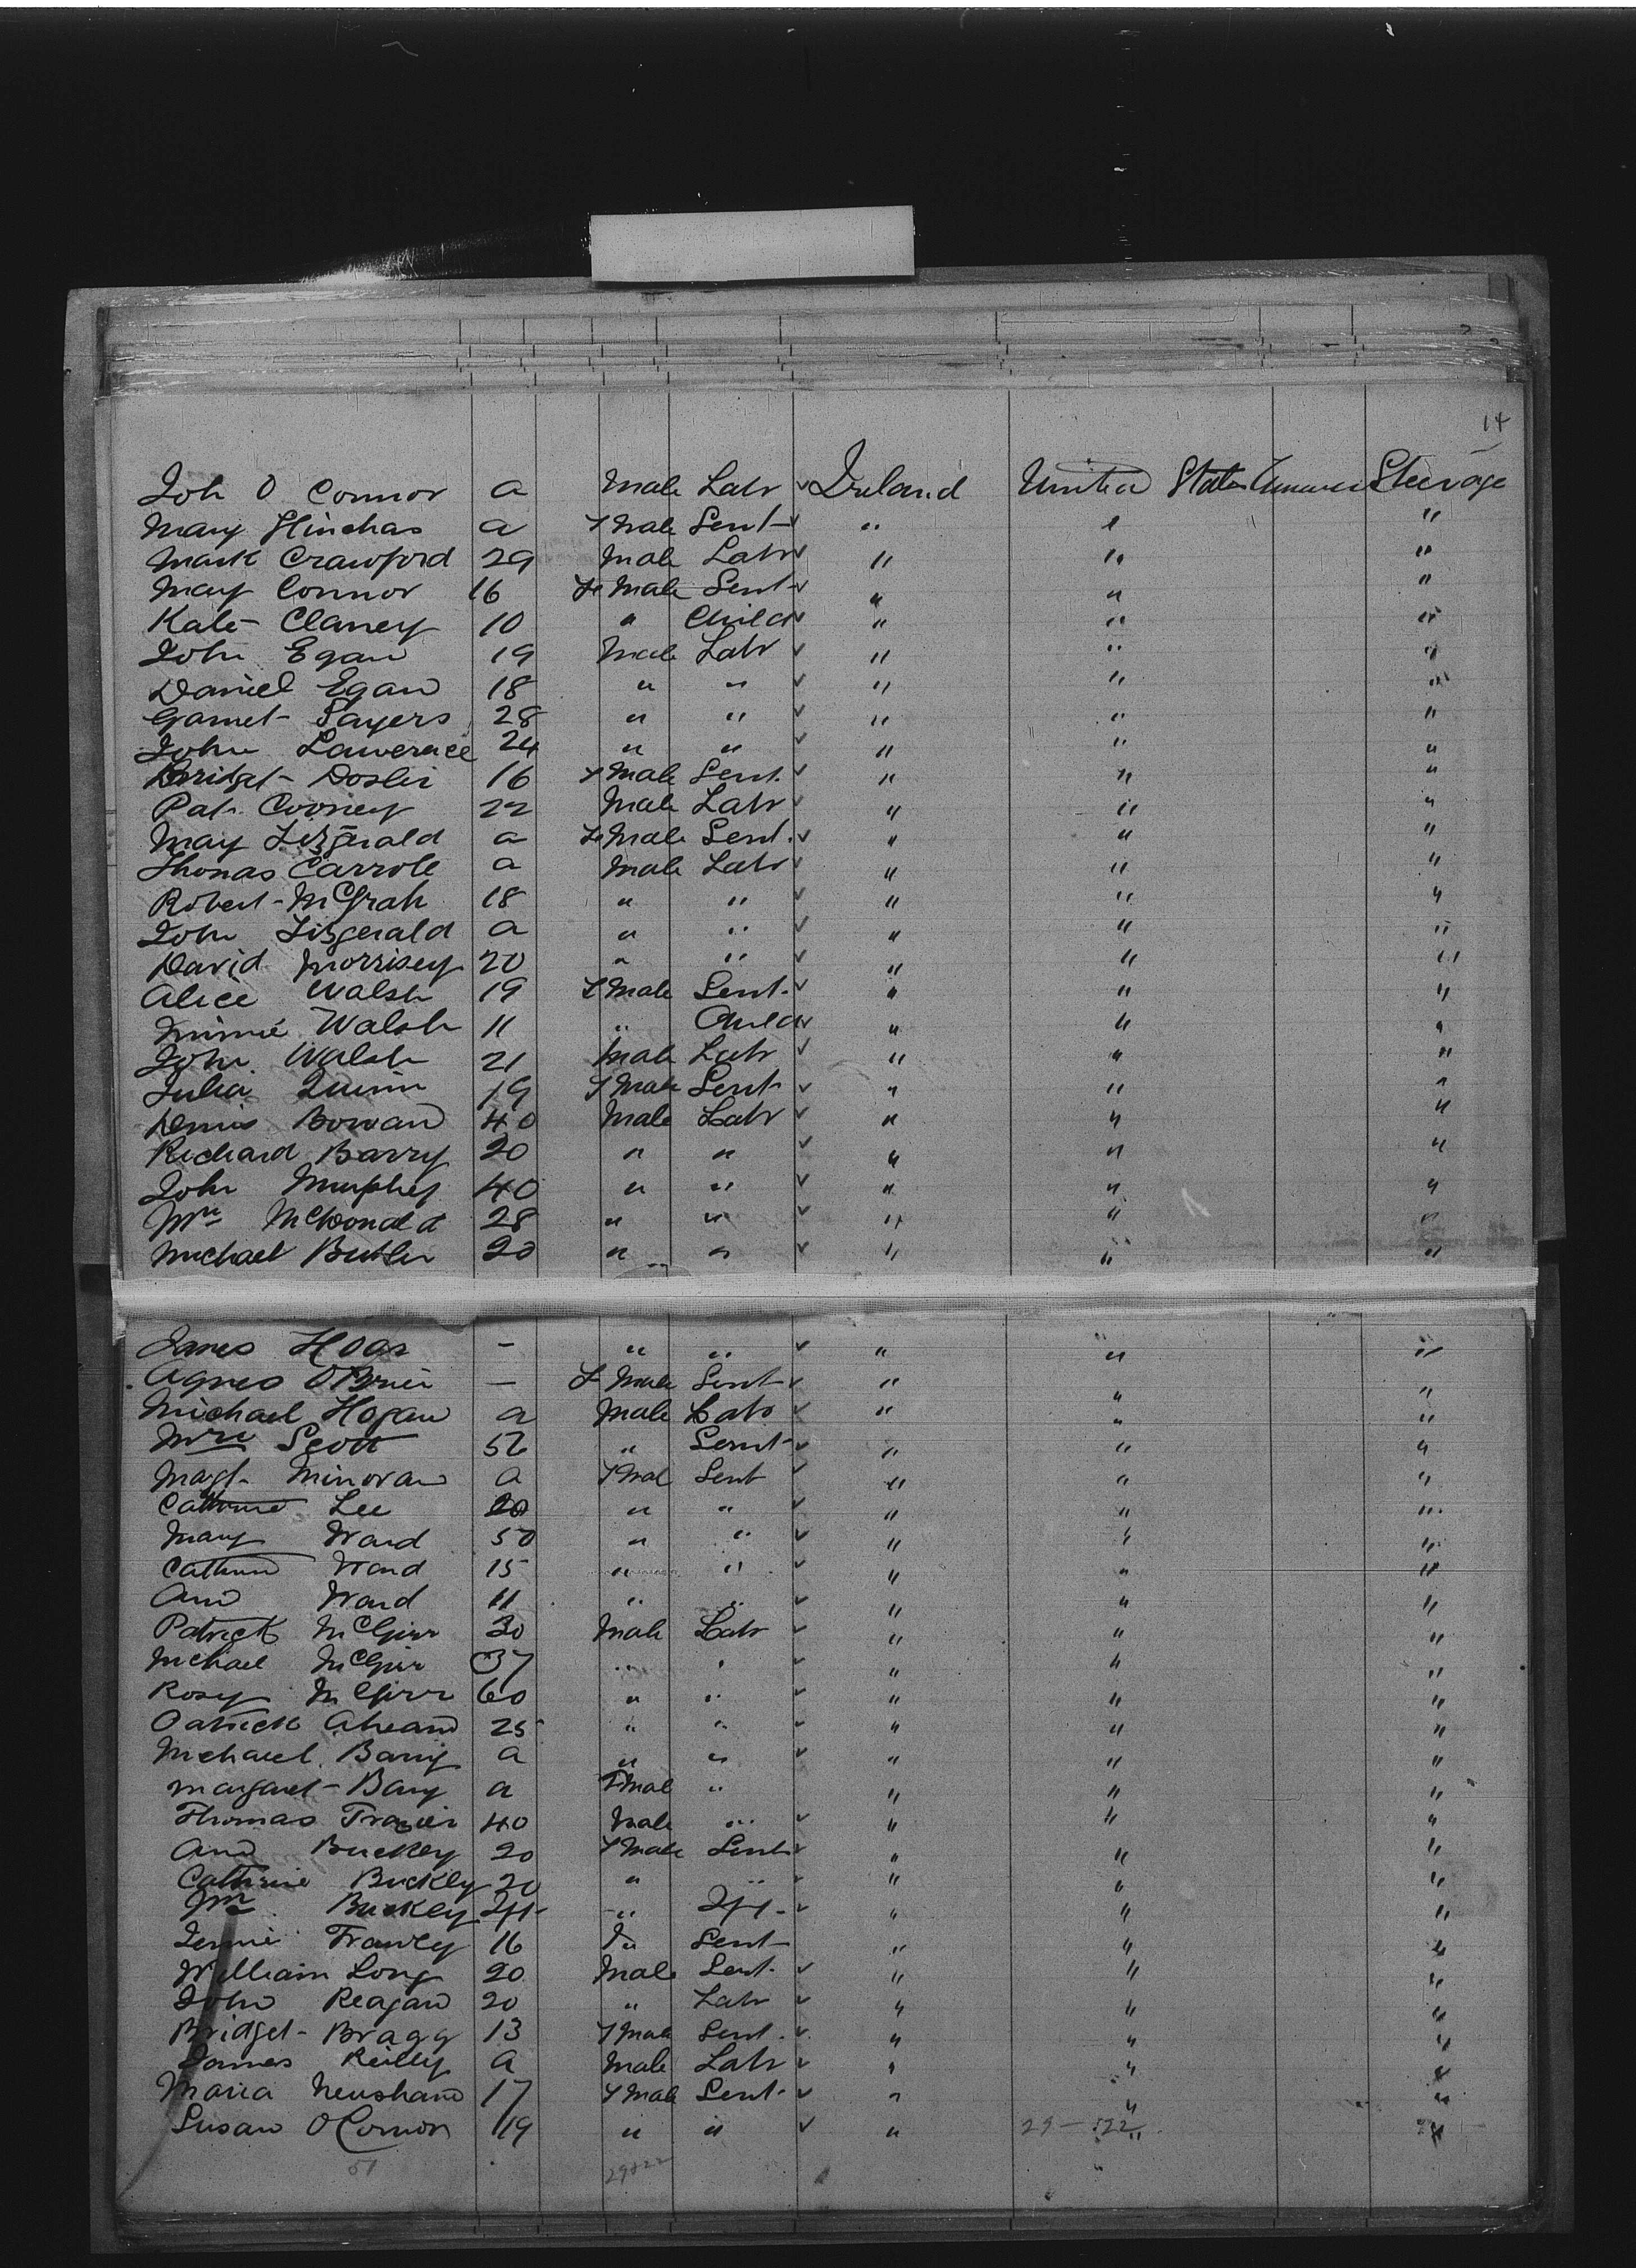 14
Joh O Connor a Male Labr ✓ Ireland United States Steerage
Mary Hinchas a F Male Sent ✓ " " "
Mark Crawford 29 Male Labr ✓ " " "
Mary Connor 16 Fe Male Sent ✓ " " "
Kate Clancy 10 " Child ✓ " " "
John Egan 19 Male Labr ✓ " " "
Daniel Egan 18 " " ✓ " " "
Garnet Sayers 28 " " ✓ " " "
John Lawerace 24 " " ✓ " " "
Bridget Dosler 16 F Male Sent ✓ " " "
Pat Cooney 22 Male Labr ✓ " " "
May Fitzgerald a Fe Male Sent. ✓ " " "
Thomas Carrole a Male Labr ✓ " " "
Robert McGrah 18 " " ✓ " " "
John Fitzgerald a " " ✓ " " "
David Morrisey 20 " " ✓ " " "
Alice Walsh 19 F Male Sent ✓ " " "
Minnie Walsh 11 " Child ✓ " " "
John Walsh 21 Male Labr ✓ " " "
Julia Quinn 19 F Male Sent ✓ " " "
Denis Bowan 40 Male Labr ✓ " " "
Richard Barry 20 " " ✓ " " "
John Murphey 40 " " ✓ " " "
Wm McDonald 28 " " ✓ " " "
Michael Butler 20 " " ✓ " " "
James Hoar - " " ✓ " " "
Agnes O'Brien - F Male Sent ✓ " " "
Michael Hogan a Male Labr ✓ " " "
Mrs Scott 56 " Sernt ✓ " " "
Magt Minovan a F Mal Sent ✓ " " "
Catherine Lee 20 " " ✓ " " "
Mary Ward 50 " " ✓ " " "
Cathrine Ward 15 " " ✓ " " "
Ann Ward 11 " " ✓ " " "
Patrick McGirr 30 Male Labr ✓ " " "
Michael McGirr 37 " " ✓ " " "
Rosey McGirr 60 " " ✓ " " "
Patrick Ahearn 25 " " ✓ " " "
Michael Barry a " " ✓ " " "
Margaret Barry a F Mal " " " "
Thomas Frazier 40 Male " ✓ " " "
Ann Buckley 20 F Male Sent ✓ " " "
Cathrine Buckly 20 " " " "
Wm Buckley " ✓ " " "
Jennie Frawley 16 Sent " " "
William Long 20 Male Sent ✓ " " "
John Reagan 20 " Labr ✓ " " "
Bridget Bragg 13 F Male Sent ✓ " " "
James Reilly a Male Labr ✓ " " "
Maria Neushand 17 F Male Sent ✓ " " "
Susan O'Connor 19 " " ✓ " " "
51